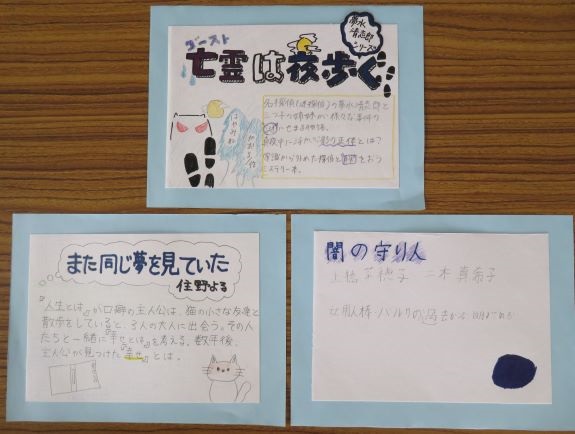 夢水
清志郎
シリーズ
ゴースト
亡霊は夜歩く
はやみね
かおる作
名探偵(迷探偵)の夢水清志郎と
三つ子の姉妹が様々な事件の
にせまる物語。
とは?
常識から外れた探偵と をおう
ミステリー本。
また同じ夢を見ていた
住野よる
『人生とは』が口癖の主人公は、猫の小さな友達と
散歩をしていると、3人の大人に出会う。その人
たちと一緒に『幸せとは』を考える。数年後、
主人公が見つけた『幸せ』とは。
闇の守り人
上橋菜穂子 二木真希子
女用心棒・バルサの過去が